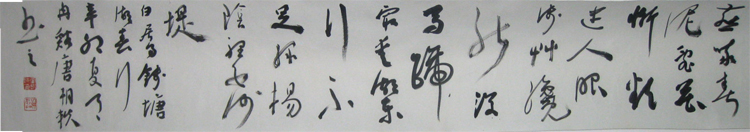 燕啄春
泥亂花
漸欲
迷人眼
淺草纔
能没
馬蹄
最愛湖東
行不
足綠楊
陰裡白沙
堤
白居易錢塘
湖春行
辛卯夏月
唐
書之